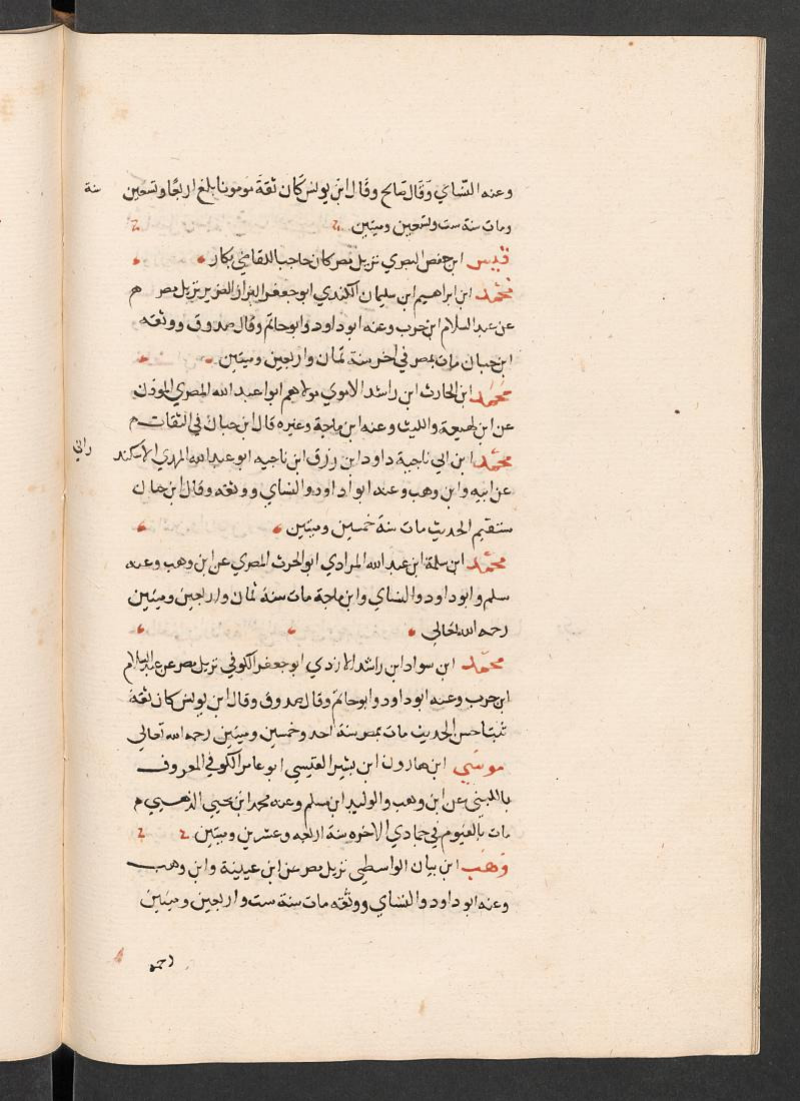 وعنه النساي وقال صالح وقال ابن يونس كان ثقة مومونا بلغ اربعا وتسعين سنة
ومات سنة ست وتسعين وميتين
قيس ابن حفص البصري نزيل مصر كان حاجبا للقاضي بكار
محمد ابن ابراهيم ابن سليمان الكندي ابو جعفر البزاز الضرير نزيل مصر
عن عبد السلام ابن حرب وعنه ابو داود وابو حاتم وقال صدوق ووثقه
ابن حبان مات بمصر في اخر سنة ثمان واربعين وميتين
محمد ابن الحارث ابن راشد الاموي مولاهم ابوا عبد الله المصري الموذن
عن ابن لهيعة والليث وعنه ابن ماجة وغيره قال ابن حبان في الثقات
محمد ابن ابي ناجية داود ابن رزق ابن ناجيه ابو عبد الله المهدي الاسكند راني
عن ابيه وابن وهب وعنه ابوا داود والنساي ووثقه وقال ابن حبان
مستقيم الحديث مات سنة خمسين وميتين
محمد ابن سلمة ابن عبد الله المرادي ابو الحرث المصري عن ابن وهب وعنه
مسلم وابو داود والنساي وابن ماجة مات سنة ثمان واربعين وميتين
رحمه الله تعالى
محمد ابن سواد ابن راشد الازدي ابو جعفر الكوفي نزيل مصر عن عبد السلام
ابن حرب وعنه ابو داود وابو حاتم وقال صدوق وقال ابن يونس كان ثقة
ثبتا حسن الحديث مات بمصر سنة احد وخمسين وميتين رحمه الله تعالى
موسى ابن هارون ابن بشير القيسي ابو عامر الكوفي المعروف
بالبني عن ابن وهب والوليد ابن مسلم وعنه محمد ابن يحيى الذهبي
مات بالفيوم في جمادي الاخره سنة اربعه وعشرين وميتين
وهب ابن بيان الواسطي نزيل مصر عن ابن عيينة وابن وهب
وعنه ابو داود والنساي ووثقه مات سنة ست واربعين وميتين
احمد